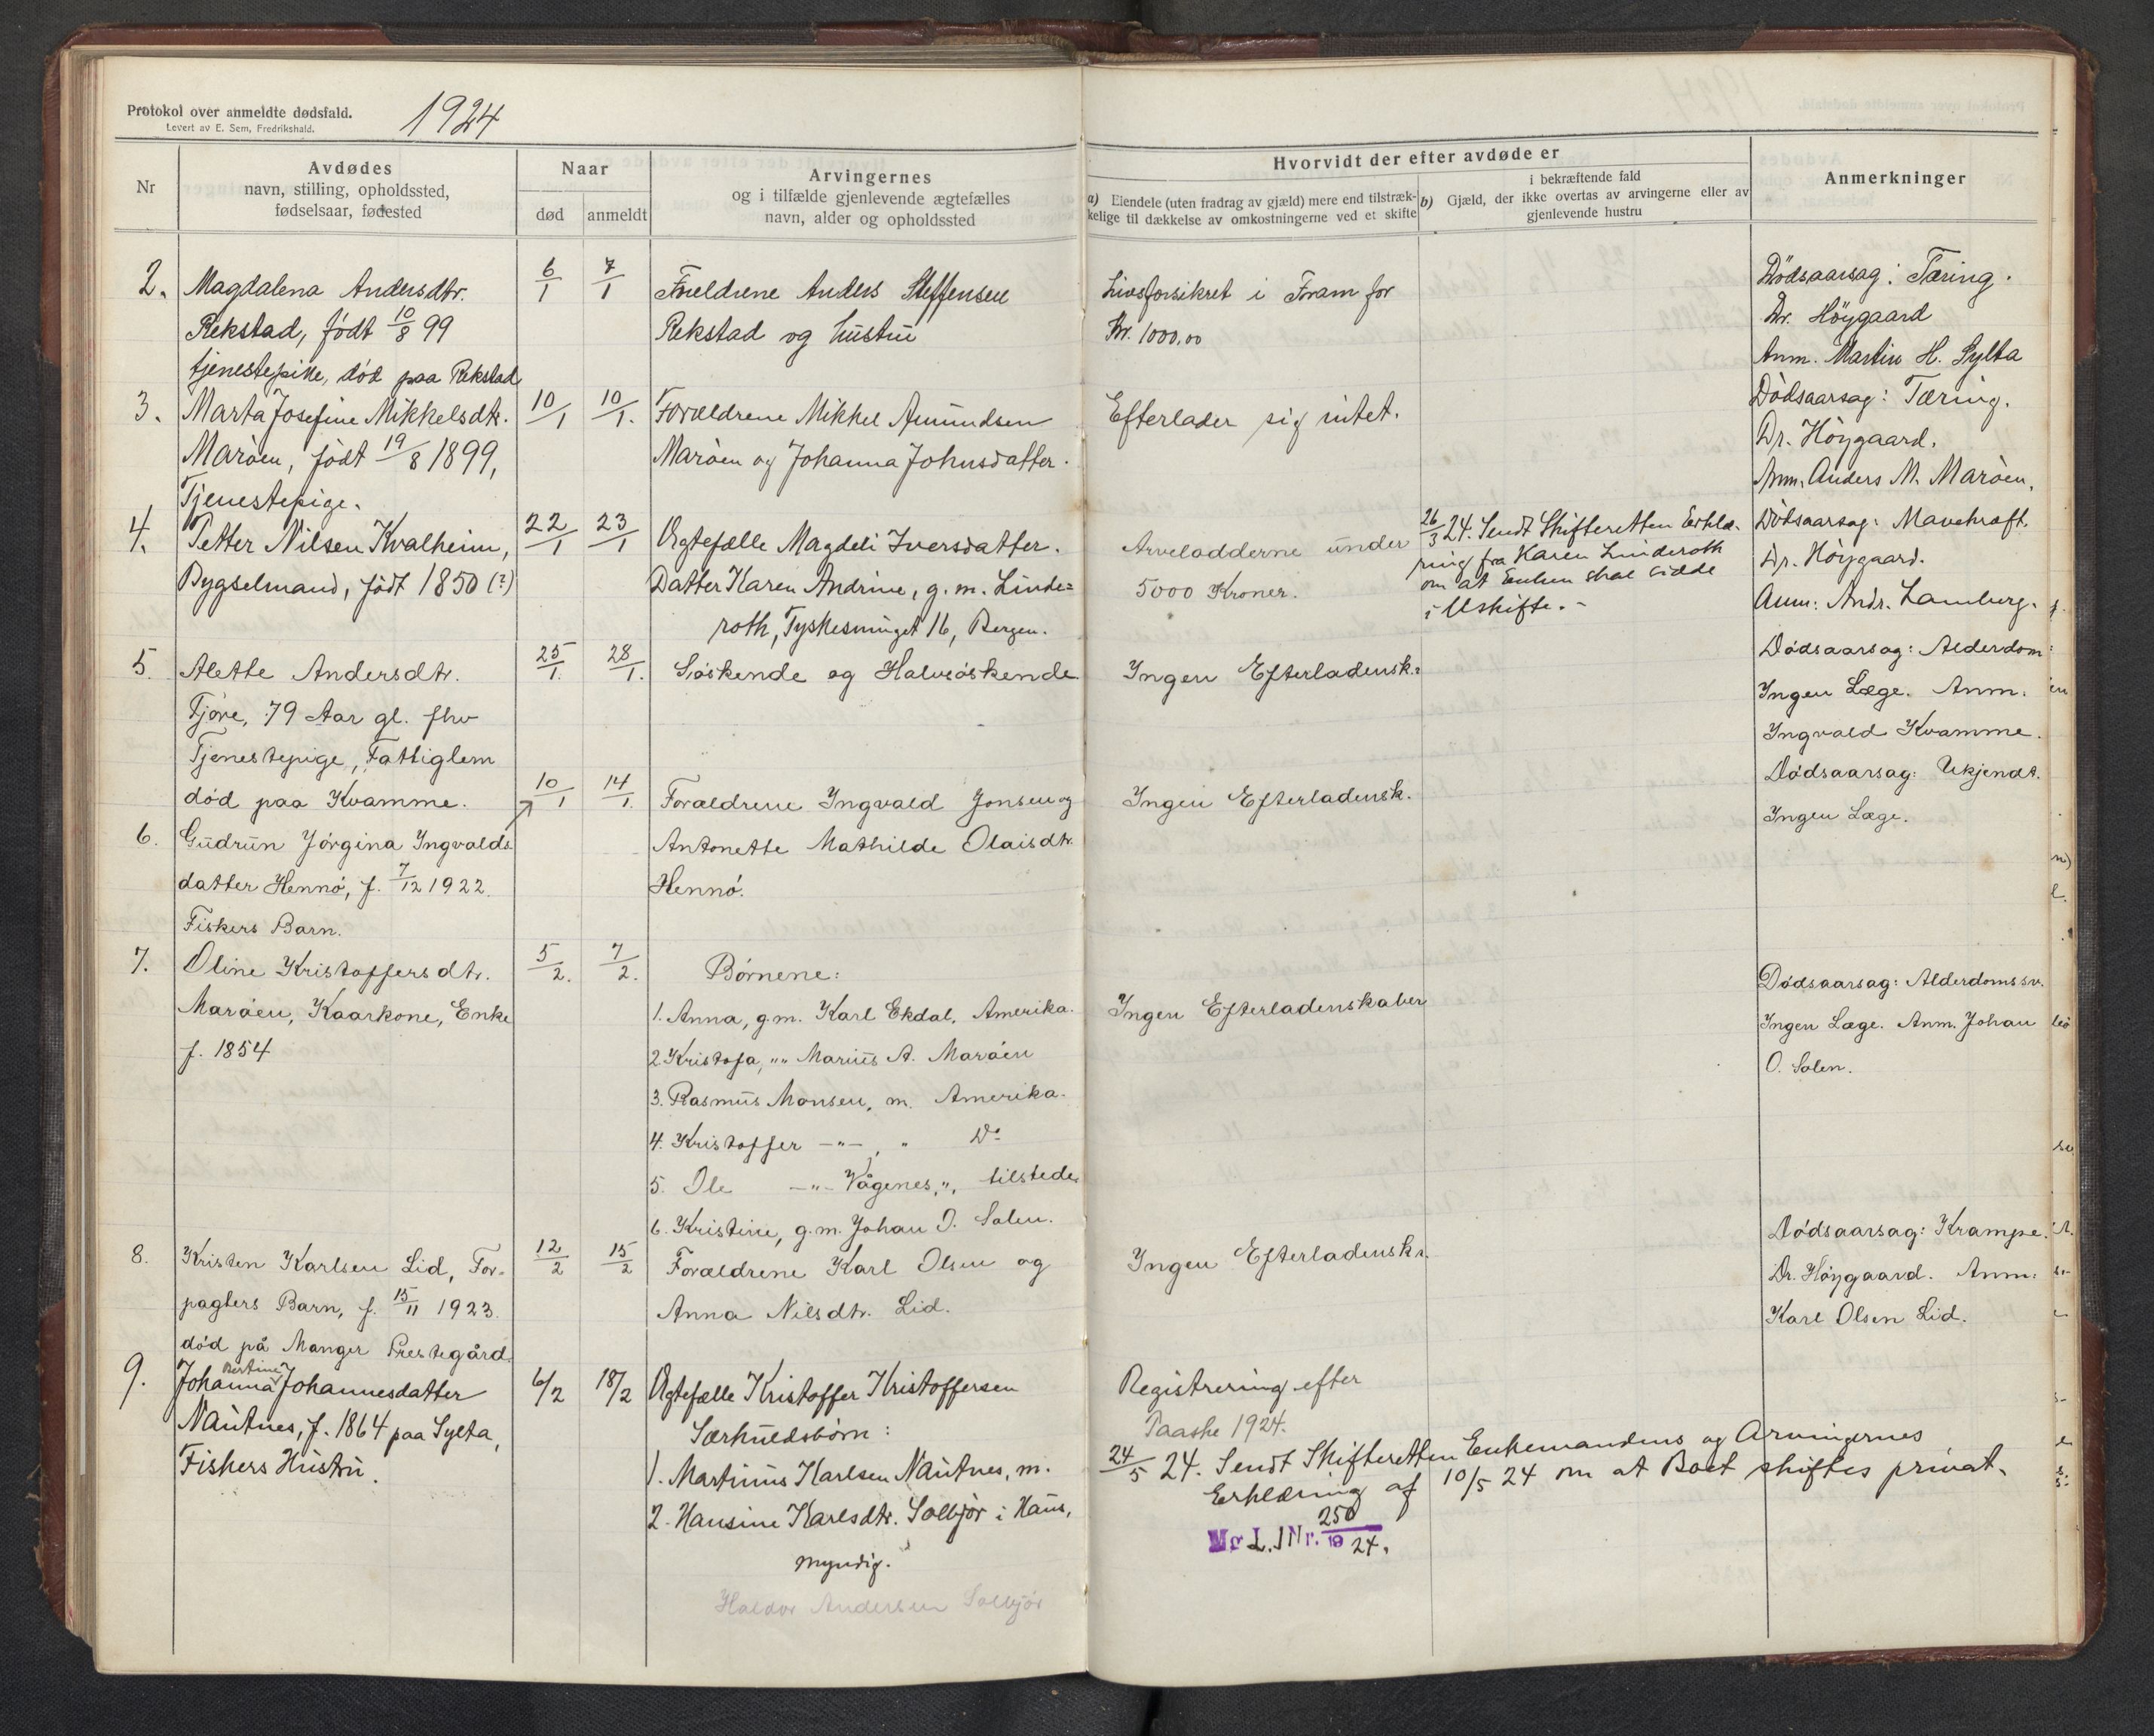 Protokol over anmeldte dødsfald.
Levert av E. Sem, Fredrikshald.
1924
Nr
Avdødes
navn, stilling, opholdssted,
fødselsaar, fødested
Naar
død
anmeldt
Arvingernes
og i tilfælde gjenlevende ægtefælles
navn, alder og opholdssted
Hvorvidt der efter avdøde er
a) Eiendele (uten fradrag av gjæld) mere end tilstræk-
kelige til dækkelse av omkostningerne ved et skifte
i bekræftende fald
b) Gjæld, der ikke overtas av arvingerne eller av
gjenlevende hustru
Anmerkninger
2.
Magdalena Andersdtr.
Rekstad, født 10/8 99
tjenestepike, död paa Rekstad
6/1
7/1
Foreldrene Anders Steffensen
Rekstad og hustru
Livsforsikret i Fram for
Kr. 1000,00
Dödsaarsag: Tæring.
Dr. Höygaard
Anm. Martin H. Sylta
3.
Marta Josefine Mikkelsdtr.
Maröen, født 19/8 1899,
Tjenestepige.
10/1
10/1.
Forældrene Mikkel Amundsen
Maröen og Johanna Johnsdatter.
Efterlader sig intet.
Dödsaarsag: Tæring.
Dr. Höygaard.
Anm. Anders M. Maröen.
4.
Petter Nilsen Kvalheim,
Bygselmand, født 1850 (?)
22/1
23/1
Ægtefælle Magdeli Iversdatter.
Datter Karen Andrine, g. m. Linde=
roth, Tyskesmuget 16, Bergen.
Arveladderne under
5000 Kroner.
26/3 24. Sendt Skifteretten Erklæ-
ring fra Karen Linderoth
om at Enken skal sidde
i Uskifte. -
Dödsaarsag: Mavekræft.
Dr. Höygaard.
Anm: Andr. Lamberg.
5.
Alette Andersdtr.
Fjöre, 79 Aar gl. fhv
Tjenestepige, Fattiglem
död paa Kvamme.
25/1.
28/1.
Söskende og Halvsöskende
Ingen Efterladensk.
Dödsaarsag: Alderdom
Ingen Læge. Anm.
Ingvald Kvamme.
6.
Gudrun Jörgina Ingvalds
datter Hennö, f. 7/12 1922.
Fiskers Barn.
10/1
14/1.
Forældrene Ingvald Jonsen og
Antonette Mathilde Olaisdtr.
Hennö.
Ingen Efterladensk.
Dödsaarsag: Ukjendt.
Ingen Læge.
7.
Oline Kristoffersdtr.
Maröen, Kaarkone, Enke
f. 1854
5/2.
7/2.
Börnene:
1. Anna, g.m. Karl Ekdal, Amerika.
2 Kristofa, "" Marius A. Maröen
3. Rasmus Monsen, m. Amerika.
4. Kristoffer -"-, " Do
5. Ole -"- Vågenes, ", tilstede
6. Kristine, g.m. Johan O. Solen.
Ingen Efterladenskaber
Dödsaarsag: Alderdomssv.
Ingen Læge. Anm. Johan
O. Solen.
8.
Kristen Karlsen Lid, For-
pagters Barn, f. 15/11 1923.
död på Manger Prestegård.
12/2
15/2
Forældrene Karl Olsen og
Anna Nilsdtr. Lid.
Ingen Efterladensk.
Dödsaarsag: Krampe.
Dr. Höygaard. Anm:
Karl Olsen Lid.
9.
Bertine
Johanna Johannesdatter
Nautnes, f. 1864 paa Sylta,
Fiskers Hustru.
6/2
18/2
Ægtefælle Kristoffer Kristoffersen
Særkuldsbörn:
1. Martinus Karlsen Nautnes, m.
2. Hansine Karlsdtr. Solbjör i Haus,
myndig.
Haldor Andersen Solbjör
Registrering efter
Paaske 1924.
24/5 24. Sendt Skifteretten Enkemandens og Arvingernes
Erklæring af 10/5 24 om at Boet skiftes privat.
Mr L. JNr. 250/19 24.